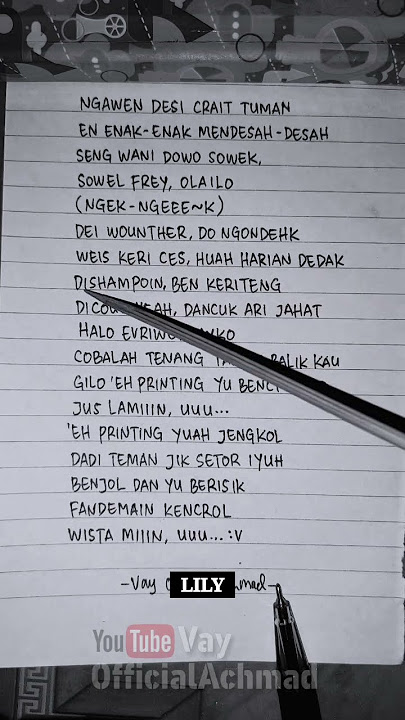 NGAWEN DESI CRAIT TUMAN
EN ENAK-ENAK MENDESAH-DESAH
SENG WANI DOWO SOWEK,
SOWEL FREY, OLAILO
(NGEK-NGEEE~K)
DEI WOUNTHER, DO NGONDEHK
WEIS KERI CES, HUAH HARIAN DEDAK
DISHAMPOIN, BEN KERITENG
DANCUK ARI JAHAT
HALO
COBALAH TENANG BALIK KAU
GILO 'EH PRINTING YU
JUS LAMIIIN, UUU...
'EH PRINTING YUAH JENGKOL
DADI TEMAN JIK SETOR IYUH
BENJOL DAN YU BERISIK
FANDEMAIN KENCROL
WISTA MIIIN, UUU... :V
-Vay
LILY
YouTube Vay
OfficialAchmad